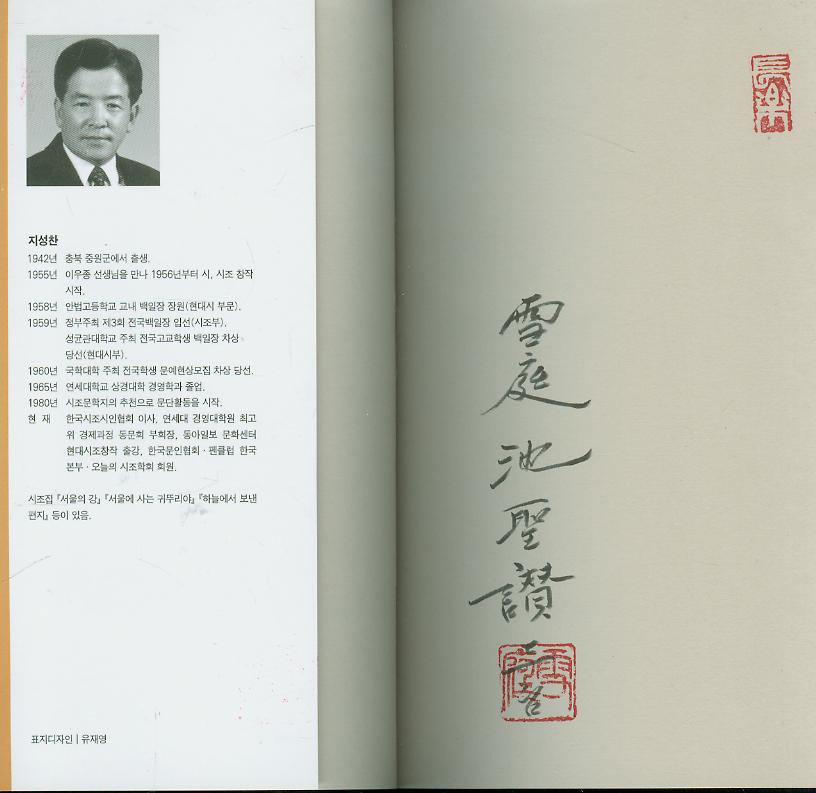 지성찬
1942년 충북 중원군에서 출생.
1955년 이우종 선생님을 만나 1956년부터 시, 시조 창작
시작.
1958년 안법고등학교 교내 백일장 장원(현대시 부문).
1959년 정부주최 제3회 전국백일장 입선(시조부).
성균관대학교 주최 전국고교학생 백일장 차상
당선(현대시부).
1960년 국학대학 주최 전국학생 문예현상모집 차상 당선.
1965년 연세대학교 상경대학 경영학과 졸업.
1980년 시조문학지의 추천으로 문단활동을 시작.
현 재 한국시조시인협회 이사, 연세대 경영대학원 최고
위 경제과정 동문회 부회장, 동아일보 문화센터
현대시조창작 출강, 한국문인협회·펜클럽 한국
본부·오늘의 시조학회 회원.
시조집 『서울의 강』 『서울에 사는 귀뚜리야』 『하늘에서 보낸
편지』 등이 있음.
표지디자인 | 유재영
長樂
雪庭
池聖讚